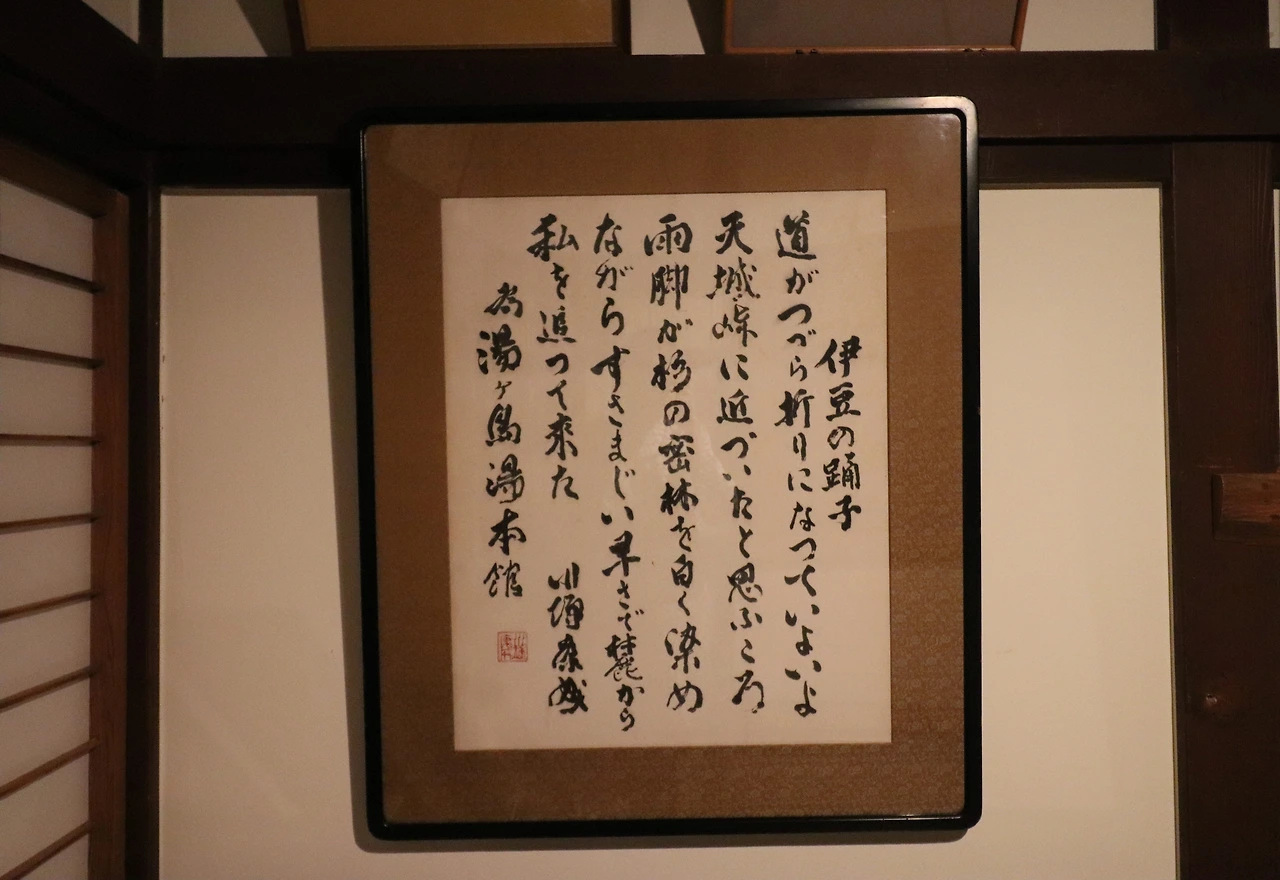 伊豆の踊子
道がつづら折りになつていよいよ
天城峠に近づいたと思ふころ
雨脚が杉の密林を白く染め
ながらすさまじい早さで麓から
私を追つて来た
川端康成
為湯ヶ島湯本館